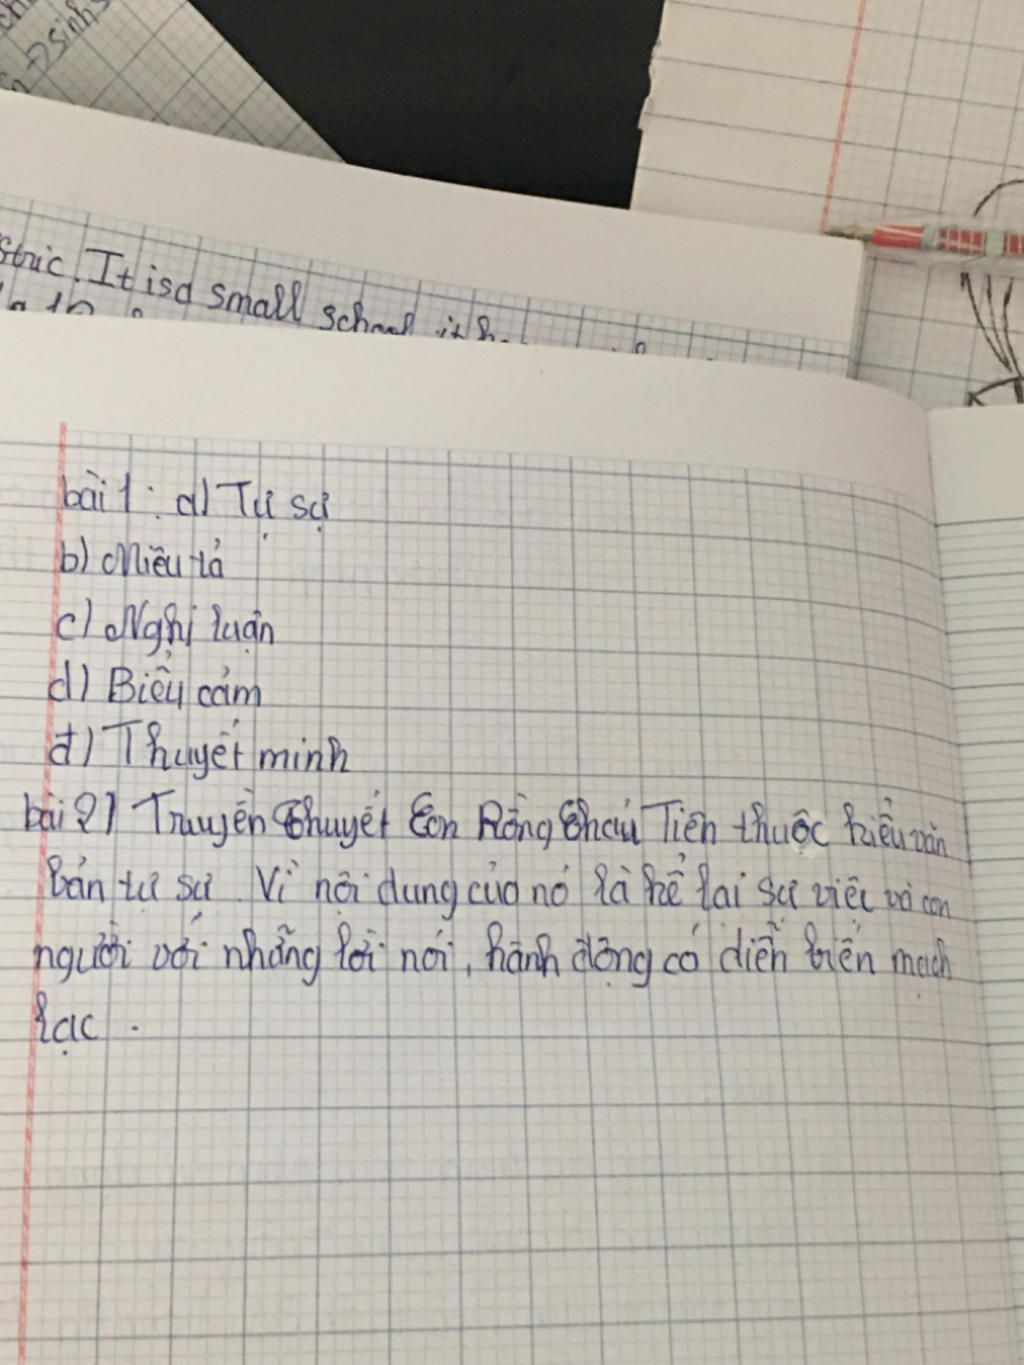 sinh
stric. It is a small school it
bài 1: a) Tự sự
b) Miêu tả
c) Nghị luận
d) Biểu cảm
đ) Thuyết minh
bài 2) Truyền thuyết Con Rồng Cháu Tiên thuộc kiểu văn
bản tự sự. Vì nội dung của nó là kể lại sự việc và con
người với những lời nói, hành động có diễn biến mạch
lạc.